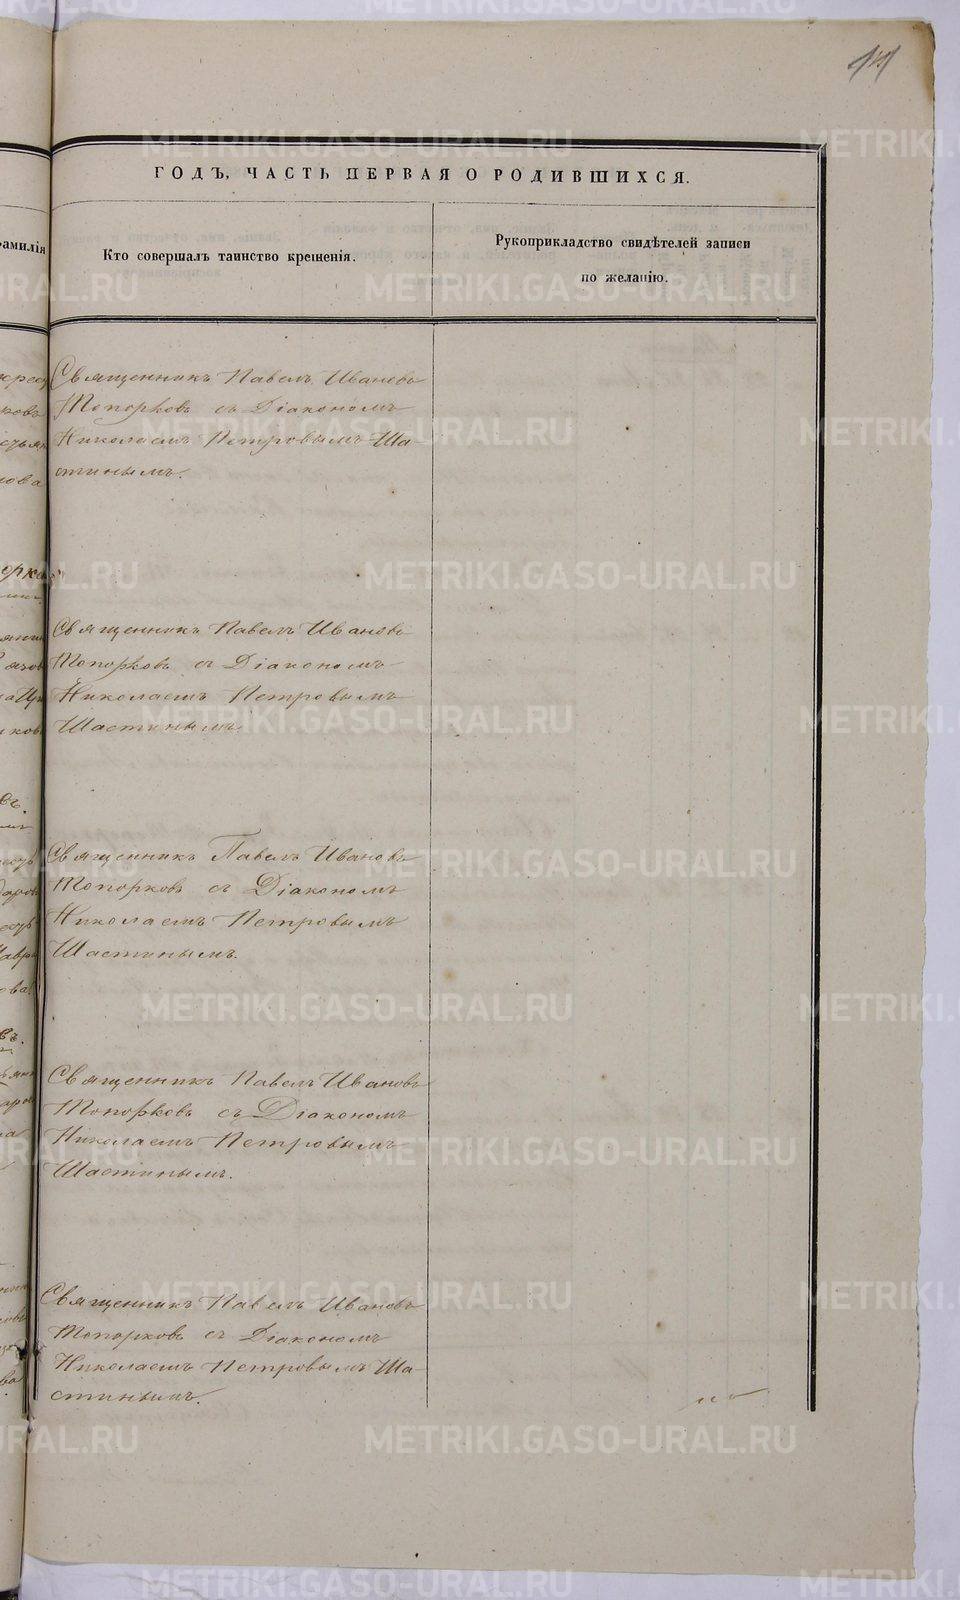 ГОДЪ, ЧАСТЬ ПЕРВАЯ О РОДИВШИХСЯ.
Кто совершалъ таинство крещенія.
Рукоприкладство свидѣтелей записи
по желанію.
Священникъ Павелъ Ивановъ
Топорковъ съ Діакономъ
Николаемъ Петровымъ Ша-
стинымъ.
Священникъ Павелъ Ивановъ
Топорковъ съ Діакономъ
Николаемъ Петровымъ
Шастинымъ.
Священникъ Павелъ Ивановъ
Топорковъ съ Діакономъ
Николаемъ Петровымъ
Шастинымъ.
Священникъ Павелъ Ивановъ
Топорковъ съ Діакономъ
Николаемъ Петровымъ
Шастинымъ.
Священникъ Павелъ Ивановъ
Топорковъ съ Діакономъ
Николаемъ Петровымъ Ша-
стинымъ.
METRIKI.GASO-URAL.RU